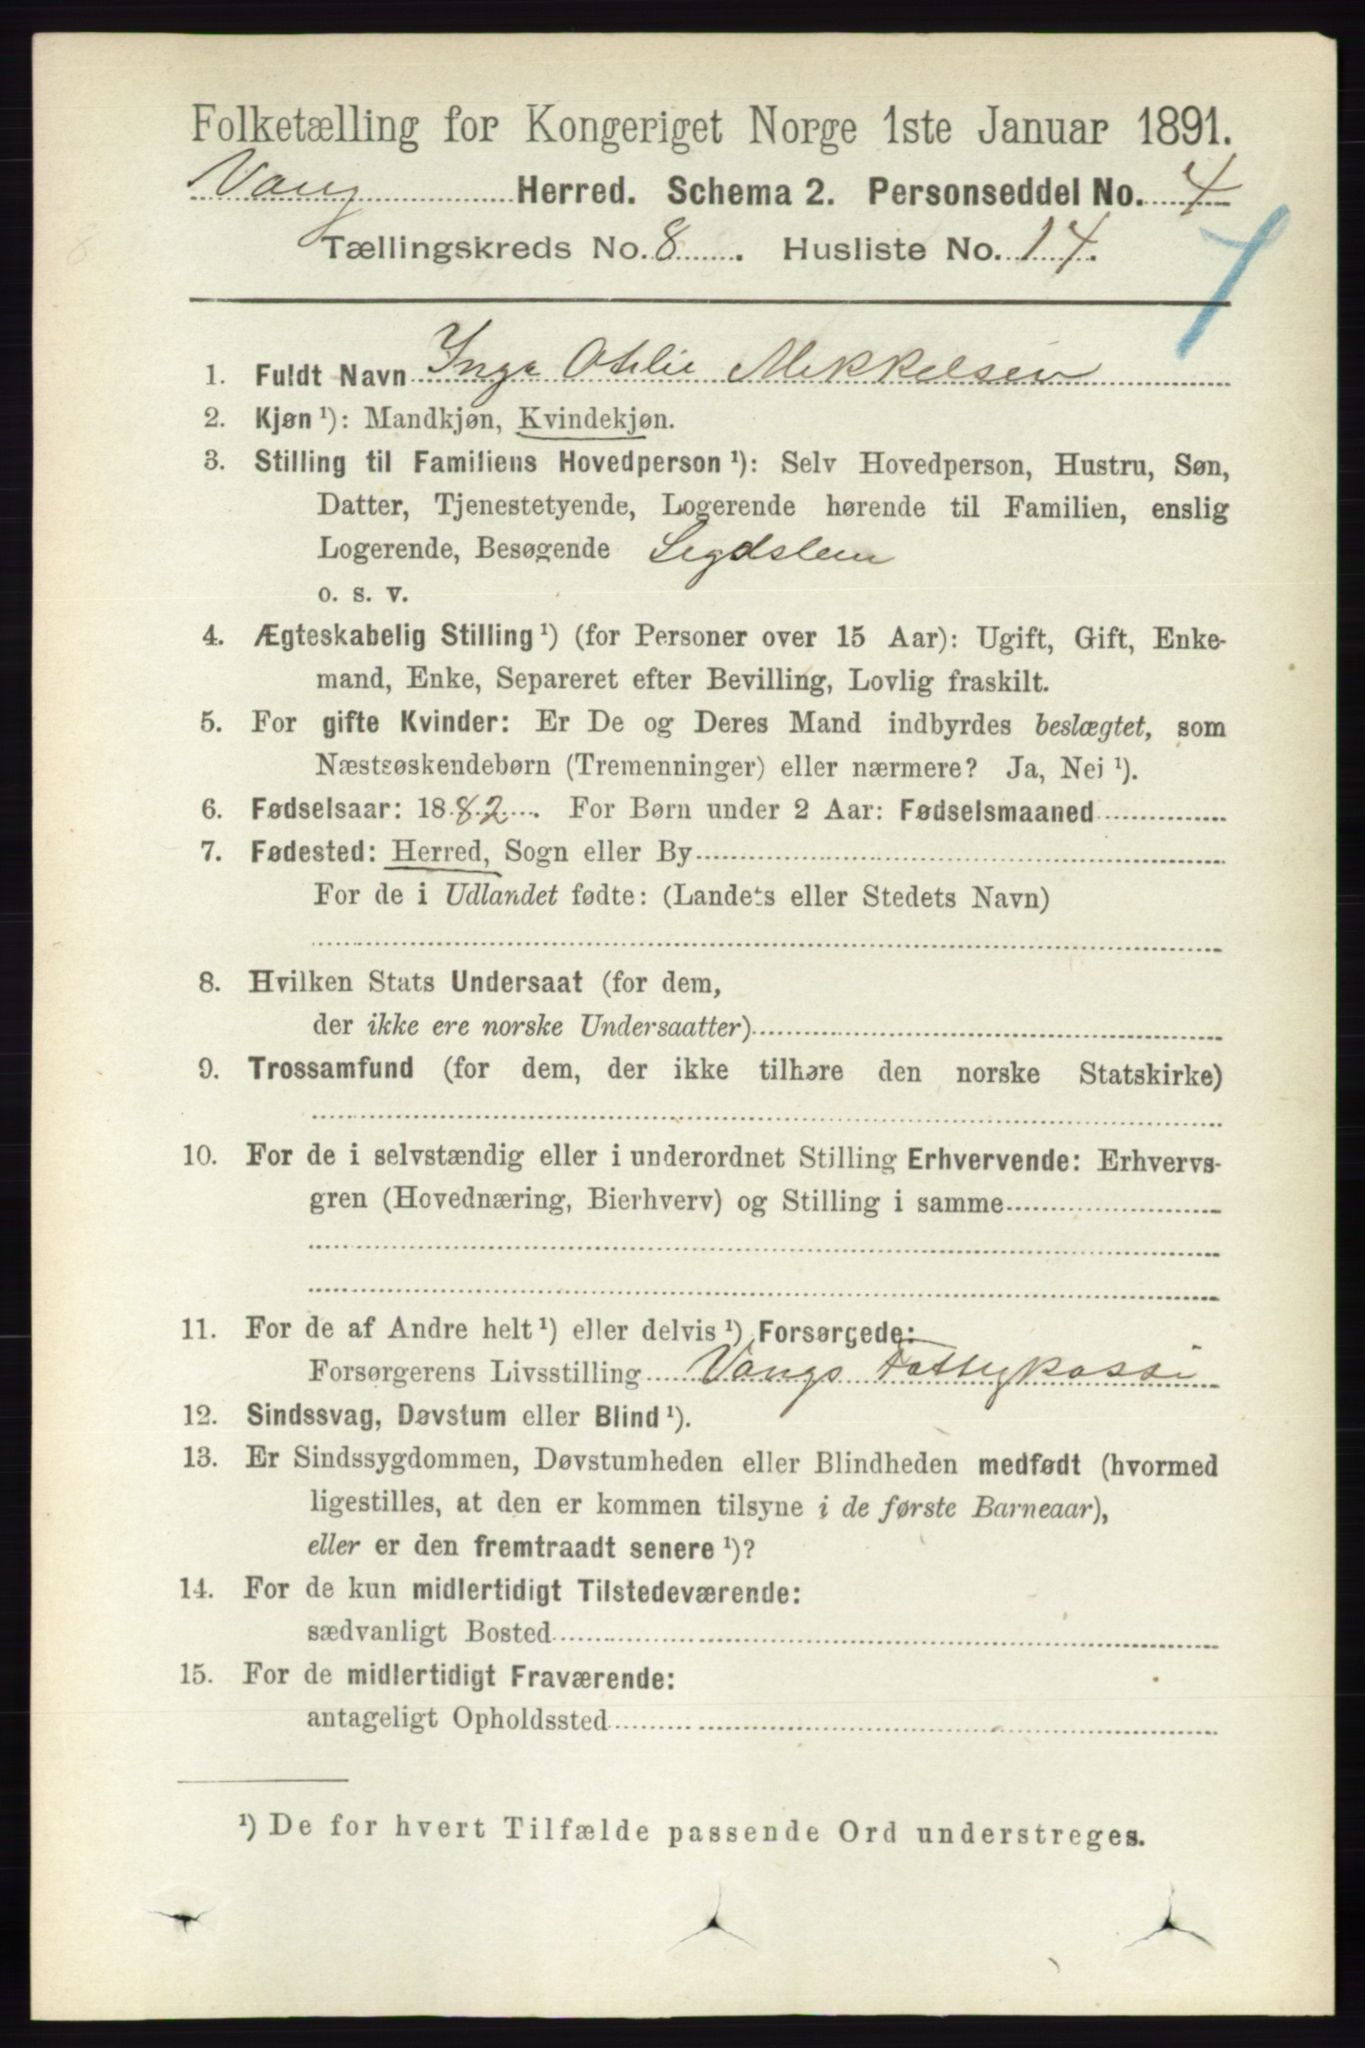 Folketælling for Kongeriget Norge 1ste Januar 1891.
Vang Herred. Schema 2. Personseddel No. 4
Tællingskreds No. 8. Husliste No. 14.
1. Fuldt Navn Inga Otilie Mekkelsen
2. Kjøn ¹): Mandkjøn, Kvindekjøn.
3. Stilling til Familiens Hovedperson ¹): Selv Hovedperson, Hustru, Søn,
Datter, Tjenestetyende, Logerende hørende til Familien, enslig
Logerende, Besøgende Legdslem
o. s. v.
4. Ægteskabelig Stilling ¹) (for Personer over 15 Aar): Ugift, Gift, Enke-
mand, Enke, Separeret efter Bevilling, Lovlig fraskilt.
5. For gifte Kvinder: Er De og Deres Mand indbyrdes beslægtet, som
Næstsøskendebørn (Tremenninger) eller nærmere? Ja, Nei ¹).
6. Fødselsaar: 1882. For Børn under 2 Aar: Fødselsmaaned
7. Fødested: Herred, Sogn eller By
For de i Udlandet fødte: (Landets eller Stedets Navn)
8. Hvilken Stats Undersaat (for dem,
der ikke ere norske Undersaatter)
9. Trossamfund (for dem, der ikke tilhøre den norske Statskirke)
10. For de i selvstændig eller i underordnet Stilling Erhvervende: Erhvervs-
gren (Hovednæring, Bierhverv) og Stilling i samme
11. For de af Andre helt ¹) eller delvis ¹) Forsørgede:
Forsørgerens Livsstilling Vangs Fattigkasse
12. Sindssvag, Døvstum eller Blind ¹).
13. Er Sindssygdommen, Døvstumheden eller Blindheden medfødt (hvormed
ligestilles, at den er kommen tilsyne i de første Barneaar),
eller er den fremtraadt senere ¹)?
14. For de kun midlertidigt Tilstedeværende:
sædvanligt Bosted
15. For de midlertidigt Fraværende:
antageligt Opholdssted
¹) De for hvert Tilfælde passende Ord understreges.